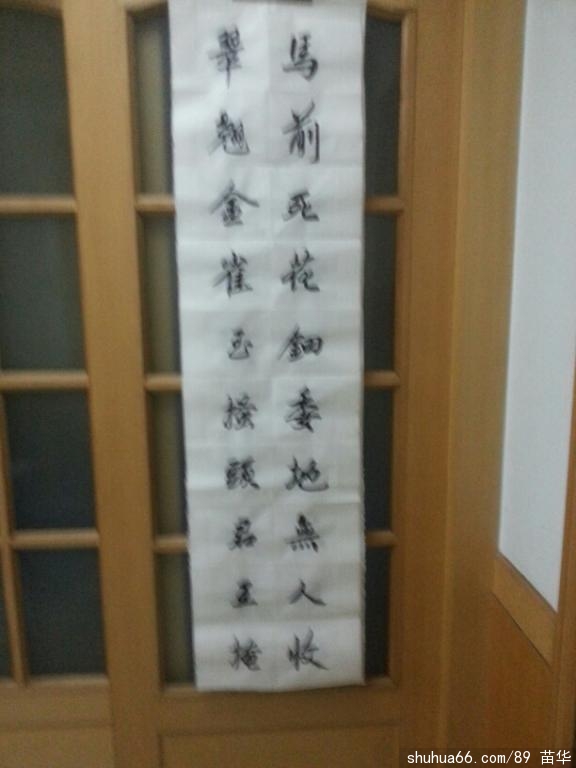 馬前死花鈿委地無人收
翠翹金雀玉搔頭君王掩
shuhua66.com/89 苗华